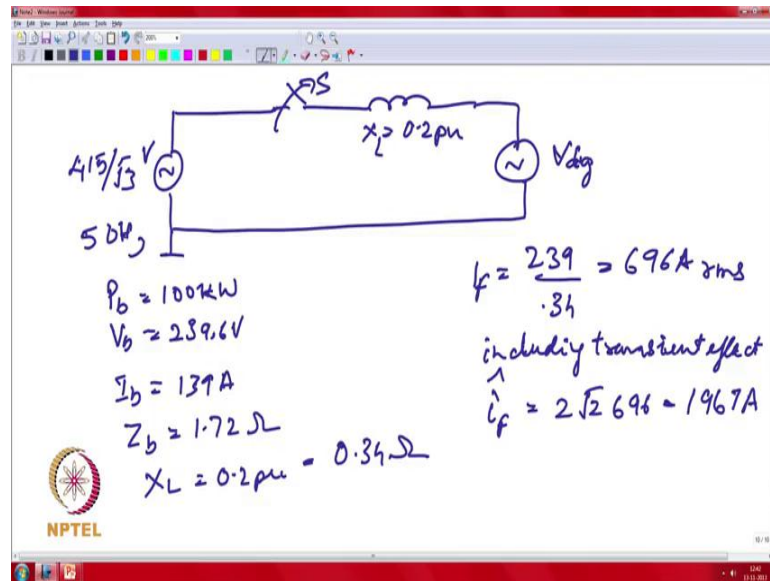 Note2 - Windows Journal
File Edit View Insert Actions Tools Help
200%
B I
S
415/√3 V
50Hz
X_L = 0.2pu
V_dg
P_b = 100kW
V_b = 239.6V
I_b = 139A
Z_b = 1.72 Ω
X_L = 0.2pu = 0.34Ω
I_f = 239/.34 = 696A rms
including transient effect
î_f = 2√2 696 = 1967A
NPTEL
10/10
12:42
13-11-2012